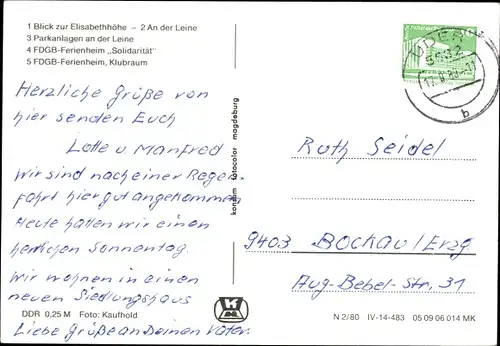 1 Blick zur Elisabethhöhe – 2 An der Leine
3 Parkanlagen an der Leine
4 FDGB-Ferienheim „Solidarität"
5 FDGB-Ferienheim, Klubraum
Herzliche Grüße von
hier senden Euch
Lotte u Manfred
Wir sind nach einer Regen-
fahrt hier gut angekommen
Heute hatten wir einen
herrlichen Sonnentag.
Wir wohnen in einen
neuen Siedlungshaus
DDR 0,25 M Foto: Kaufhold
Liebe Grüße an Deinen Vater.
konsum fotocolor magdeburg
5632
b
Ruth Seidel
9403 Bockau/Erzg
Aug-Bebel-Str. 31
N 2/80 IV-14-483 05 09 06 014 MK